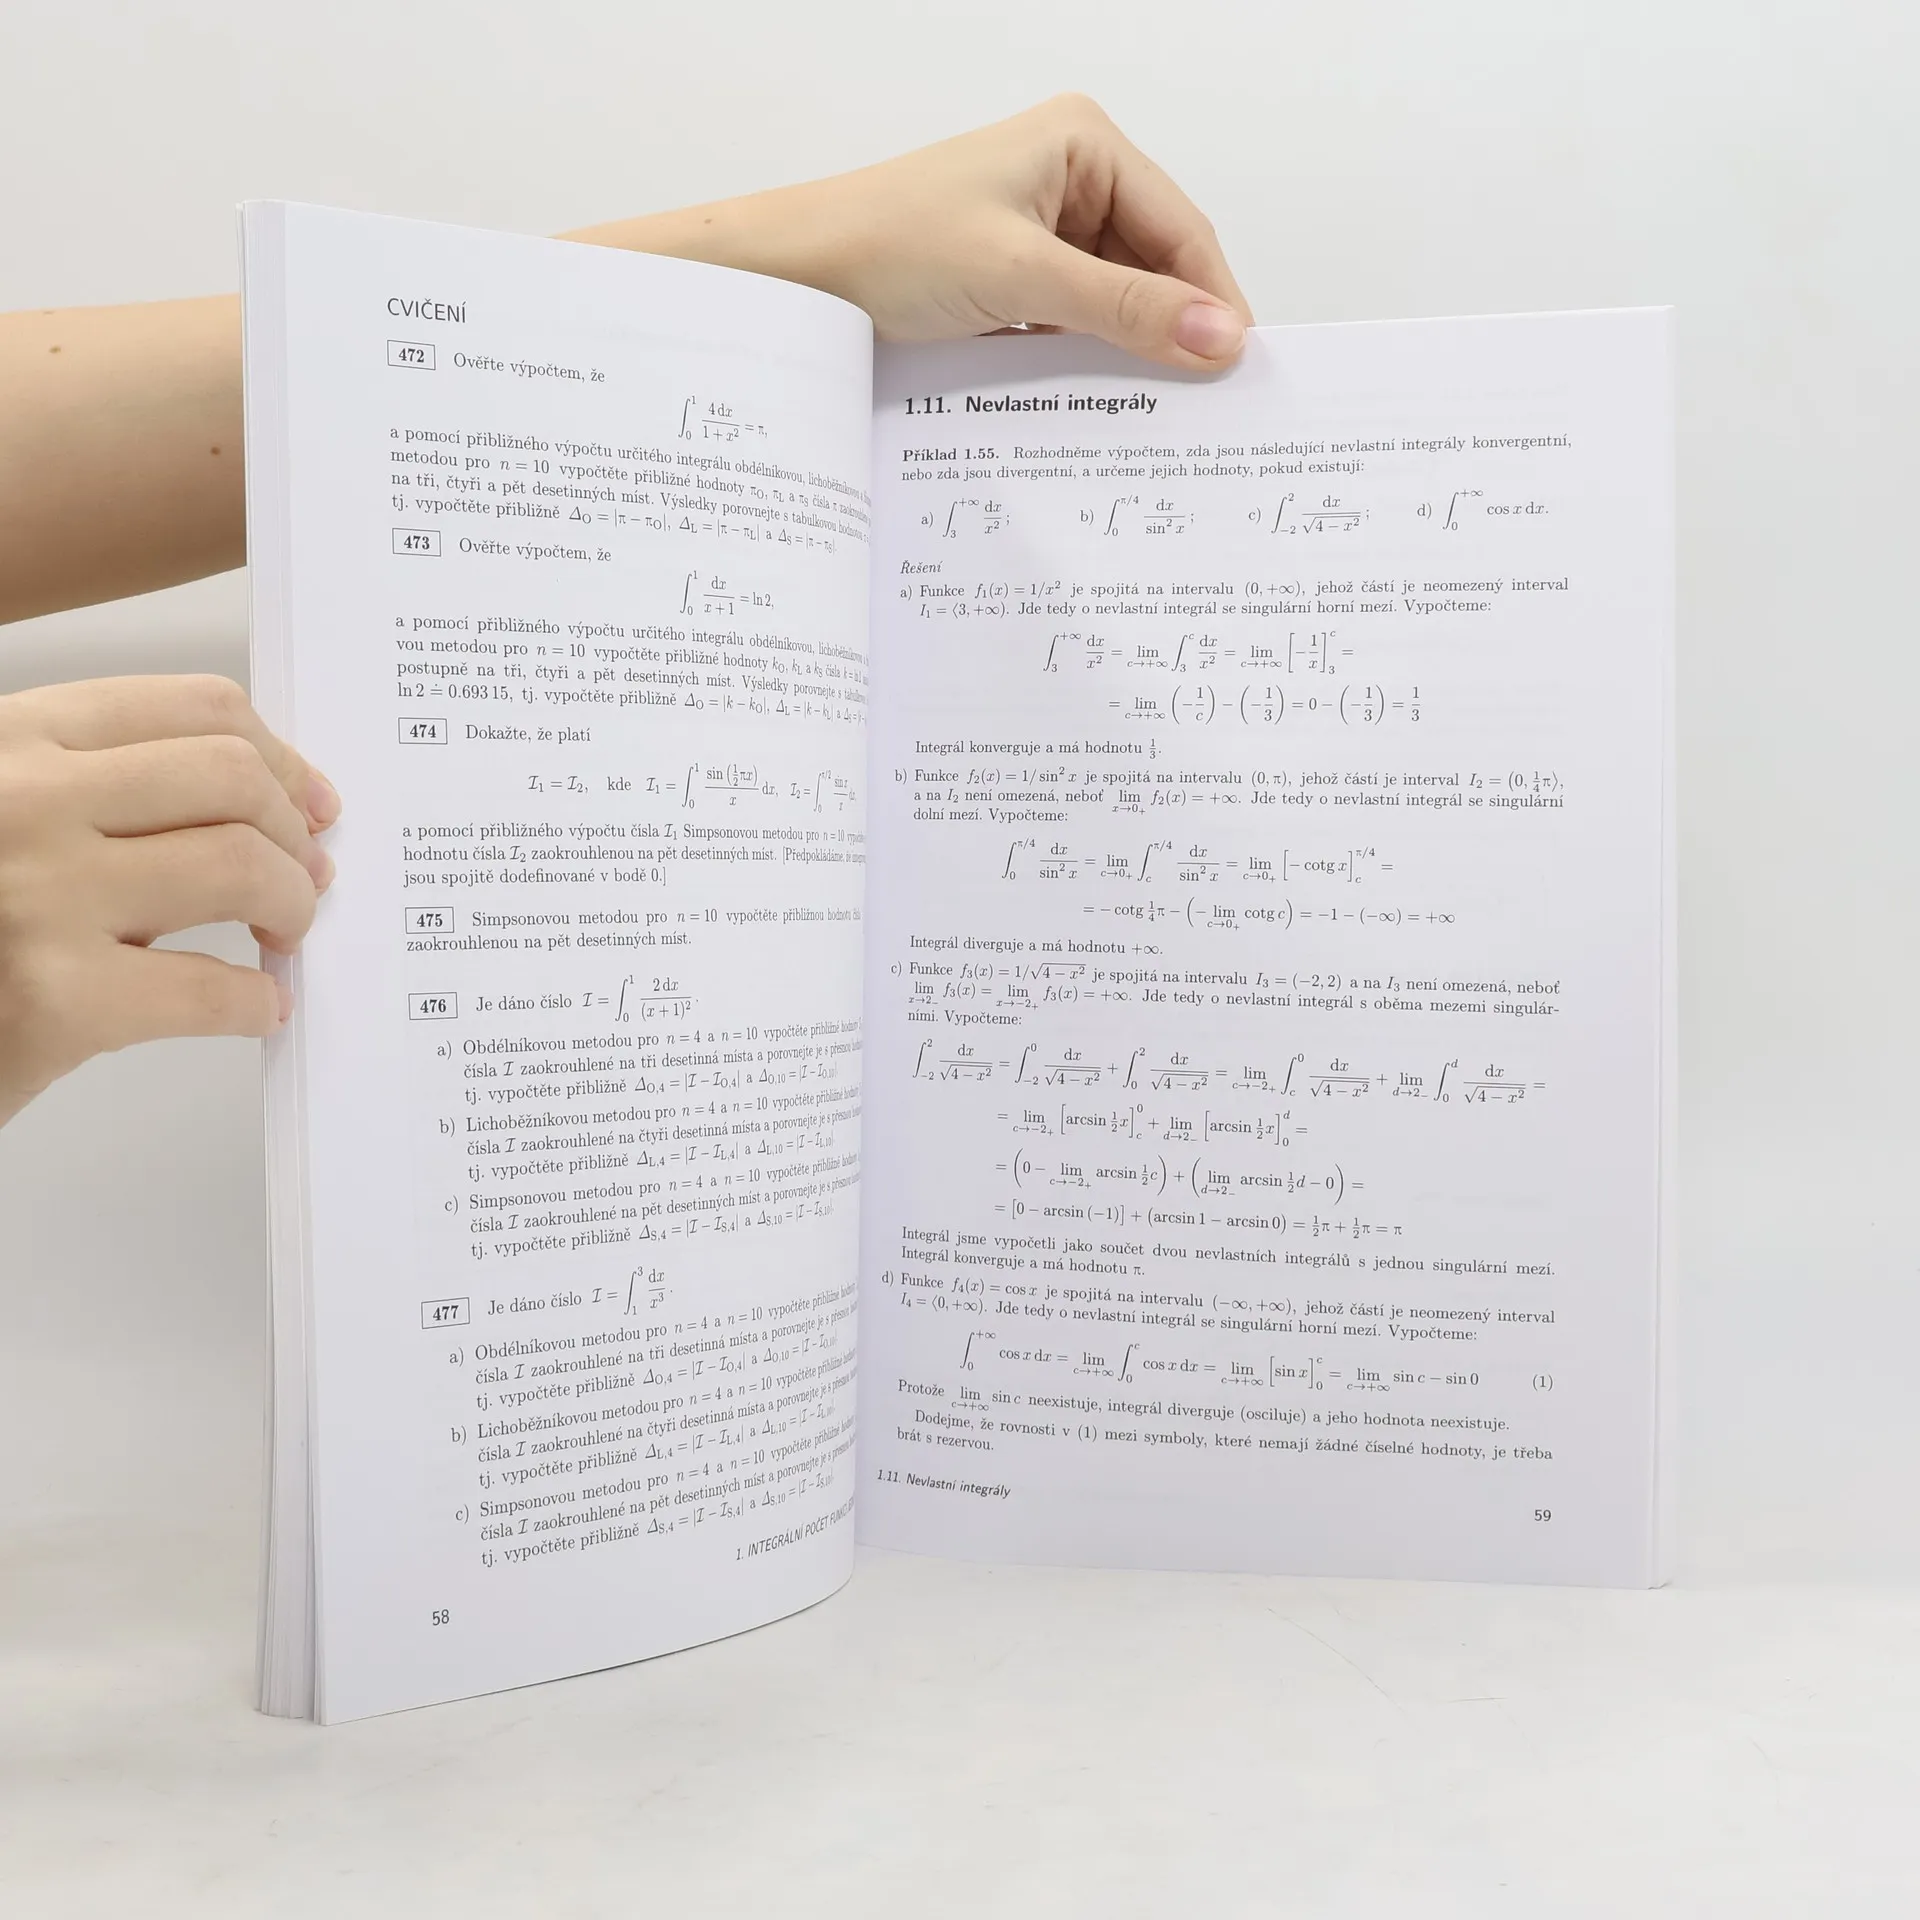 CVIČENÍ
472 Ověřte výpočtem, že
∫₀¹ 4 dx / (1 + x²) = π,
a pomocí přibližného výpočtu určitého integrálu obdélníkovou, lichoběžníkovou a
metodou pro n = 10 vypočtěte přibližné hodnoty πO, πL a πS čísla π
na tři, čtyři a pět desetinných míst. Výsledky porovnejte s tabulkovou hodnotou
tj. vypočtěte přibližně ΔO = |π − πO|, ΔL = |π − πL| a ΔS = |π − πS|.
473 Ověřte výpočtem, že
∫₀¹ dx / (x + 1) = ln 2,
a pomocí přibližného výpočtu určitého integrálu obdélníkovou, lichoběžníkovou
vou metodou pro n = 10 vypočtěte přibližné hodnoty kO, kL a kS čísla k = ln 2
postupně na tři, čtyři a pět desetinných míst. Výsledky porovnejte s
ln 2 ≐ 0.693 15, tj. vypočtěte přibližně ΔO = |k − kO|, ΔL = |k − kL| a ΔS =
474 Dokažte, že platí
I₁ = I₂, kde I₁ = ∫₀¹ sin (½πx) / x dx, I₂ = ∫₀^(π/2) sin x / x dx,
a pomocí přibližného výpočtu čísla I₁ Simpsonovou metodou pro n = 10
hodnotu čísla I₂ zaokrouhlenou na pět desetinných míst. [Předpokládáme, že
jsou spojitě dodefinované v bodě 0.]
475 Simpsonovou metodou pro n = 10 vypočtěte přibližnou hodnotu
zaokrouhlenou na pět desetinných míst.
476 Je dáno číslo I = ∫₀¹ 2 dx / (x + 1)².
a) Obdélníkovou metodou pro n = 4 a n = 10 vypočtěte přibližné hodnoty
čísla I zaokrouhlené na tři desetinná místa a porovnejte je s přesnou
tj. vypočtěte přibližně ΔO,4 = |I − IO,4| a ΔO,10 = |I − IO,10|.
b) Lichoběžníkovou metodou pro n = 4 a n = 10 vypočtěte přibližné hodnoty
čísla I zaokrouhlené na čtyři desetinná místa a porovnejte je s přesnou
tj. vypočtěte přibližně ΔL,4 = |I − IL,4| a ΔL,10 = |I − IL,10|.
c) Simpsonovou metodou pro n = 4 a n = 10 vypočtěte přibližné hodnoty
čísla I zaokrouhlené na pět desetinných míst a porovnejte je s přesnou
tj. vypočtěte přibližně ΔS,4 = |I − IS,4| a ΔS,10 = |I − IS,10|.
477 Je dáno číslo I = ∫₁³ dx / x³.
a) Obdélníkovou metodou pro n = 4 a n = 10 vypočtěte přibližné hodnoty
čísla I zaokrouhlené na tři desetinná místa a porovnejte je s přesnou
tj. vypočtěte přibližně ΔO,4 = |I − IO,4| a ΔO,10 = |I − IO,10|.
b) Lichoběžníkovou metodou pro n = 4 a n = 10 vypočtěte přibližné
čísla I zaokrouhlené na čtyři desetinná místa a porovnejte je s přesnou
tj. vypočtěte přibližně ΔL,4 = |I − IL,4| a ΔL,10 = |I − IL,10|.
c) Simpsonovou metodou pro n = 4 a n = 10 vypočtěte přibližné
čísla I zaokrouhlené na pět desetinných míst a porovnejte je s přesnou
tj. vypočtěte přibližně ΔS,4 = |I − IS,4| a ΔS,10 = |I − IS,10|.
1. INTEGRÁLNÍ POČET FUNKCÍ
58
1.11. Nevlastní integrály
Příklad 1.55. Rozhodněme výpočtem, zda jsou následující nevlastní integrály konvergentní,
nebo zda jsou divergentní, a určeme jejich hodnoty, pokud existují:
a) ∫₃^(+∞) dx / x²; b) ∫₀^(π/4) dx / sin² x; c) ∫₋₂² dx / √(4 − x²); d) ∫₀^(+∞) cos x dx.
Řešení
a) Funkce f₁(x) = 1/x² je spojitá na intervalu (0, +∞), jehož částí je neomezený interval
I₁ = ⟨3, +∞). Jde tedy o nevlastní integrál se singulární horní mezí. Vypočteme:
∫₃^(+∞) dx / x² = lim c→+∞ ∫₃^c dx / x² = lim c→+∞ [−1/x]₃^c =
= lim c→+∞ (−1/c) − (−1/3) = 0 − (−1/3) = 1/3
Integrál konverguje a má hodnotu ⅓.
b) Funkce f₂(x) = 1/ sin² x je spojitá na intervalu (0, π), jehož částí je interval I₂ = (0, ¼π⟩,
a na I₂ není omezená, neboť lim x→0₊ f₂(x) = +∞. Jde tedy o nevlastní integrál se singulární
dolní mezí. Vypočteme:
∫₀^(π/4) dx / sin² x = lim c→0₊ ∫_c^(π/4) dx / sin² x = lim c→0₊ [− cotg x]_c^(π/4) =
= − cotg ¼π − (− lim c→0₊ cotg c) = −1 − (−∞) = +∞
Integrál diverguje a má hodnotu +∞.
c) Funkce f₃(x) = 1/√(4 − x²) je spojitá na intervalu I₃ = (−2, 2) a na I₃ není omezená, neboť
lim x→2₋ f₃(x) = lim x→−2₊ f₃(x) = +∞. Jde tedy o nevlastní integrál s oběma mezemi singulár-
ními. Vypočteme:
∫₋₂² dx / √(4 − x²) = ∫₋₂⁰ dx / √(4 − x²) + ∫₀² dx / √(4 − x²) = lim c→−2₊ ∫_c⁰ dx / √(4 − x²) + lim d→2₋ ∫₀^d dx / √(4 − x²) =
= lim c→−2₊ [arcsin ½x]_c⁰ + lim d→2₋ [arcsin ½x]₀^d =
= (0 − lim c→−2₊ arcsin ½c) + (lim d→2₋ arcsin ½d − 0) =
= [0 − arcsin (−1)] + (arcsin 1 − arcsin 0) = ½π + ½π = π
Integrál jsme vypočetli jako součet dvou nevlastních integrálů s jednou singulární mezí.
Integrál konverguje a má hodnotu π.
d) Funkce f₄(x) = cos x je spojitá na intervalu (−∞, +∞), jehož částí je neomezený interval
I₄ = ⟨0, +∞). Jde tedy o nevlastní integrál se singulární horní mezí. Vypočteme:
∫₀^(+∞) cos x dx = lim c→+∞ ∫₀^c cos x dx = lim c→+∞ [sin x]₀^c = lim c→+∞ sin c − sin 0 (1)
Protože lim c→+∞ sin c neexistuje, integrál diverguje (osciluje) a jeho hodnota neexistuje.
Dodejme, že rovnosti v (1) mezi symboly, které nemají žádné číselné hodnoty, je třeba
brát s rezervou.
1.11. Nevlastní integrály
59